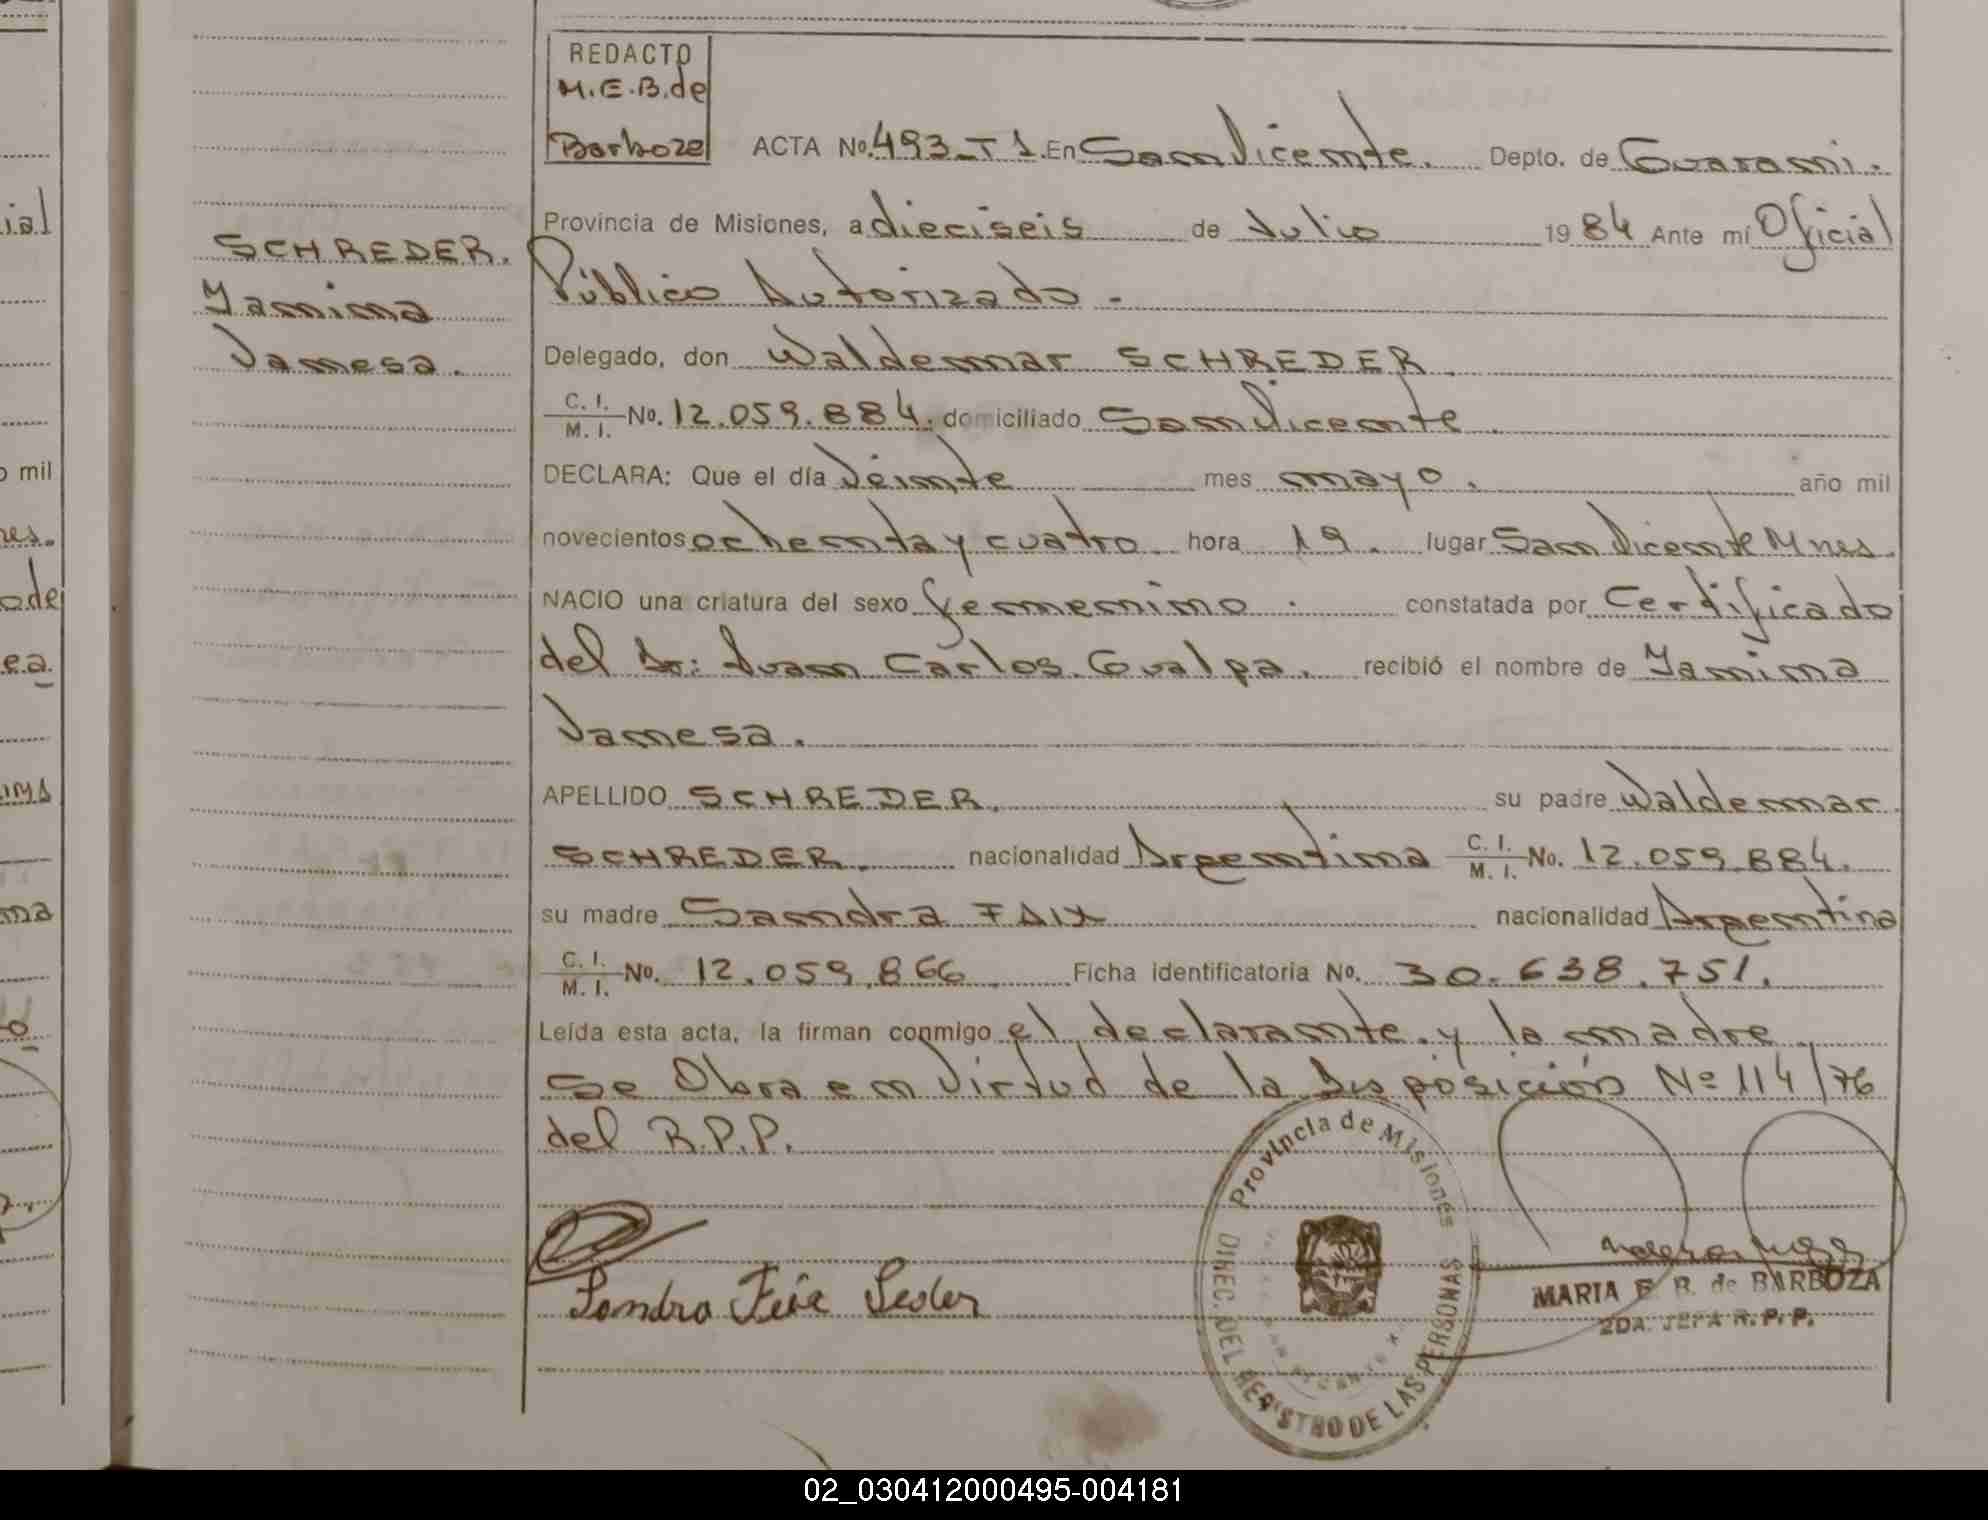 REDACTO
M.E.B. de
Barboza
ACTA No. 493_T1. En San Vicente. Depto. de Guarani.
Provincia de Misiones, a dieciseis de Julio 1984 Ante mí Oficial
Público Autorizado.
SCHREDER.
Yanina
Vanesa.
Delegado, don Waldemar SCHREDER.
C. I.
M. I. No. 12.059.884. domiciliado San Vicente.
DECLARA: Que el día Veinte mes mayo. año mil
novecientos ochenta y cuatro. hora 19. lugar San Vicente Mnes.
NACIO una criatura del sexo femenino. constatada por Certificado
del Dr: Juan Carlos Gualpa. recibió el nombre de Yanina
Vanesa.
APELLIDO SCHREDER. su padre Waldemar
SCHREDER. nacionalidad Argentina C. I.
M. I. No. 12.059.884.
su madre Sandra FAIX nacionalidad Argentina
C. I.
M. I. No. 12.059.866. Ficha identificatoria No. 30.638.751.
Leída esta acta, la firman conmigo el declarante y la madre.
Se Obra en Virtud de la Disposición Nº 114/76
del R.P.P.
Provincia de Misiones
DIREC. DEL REGISTRO DE LAS PERSONAS
MARIA E. B. de BARBOZA
2DA. JEFA R. P. P.
ial
o mil
nes.
ode
e.a.
na
02_030412000495-004181